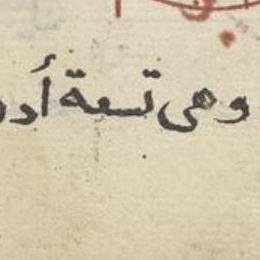 وهى تسعة أدو